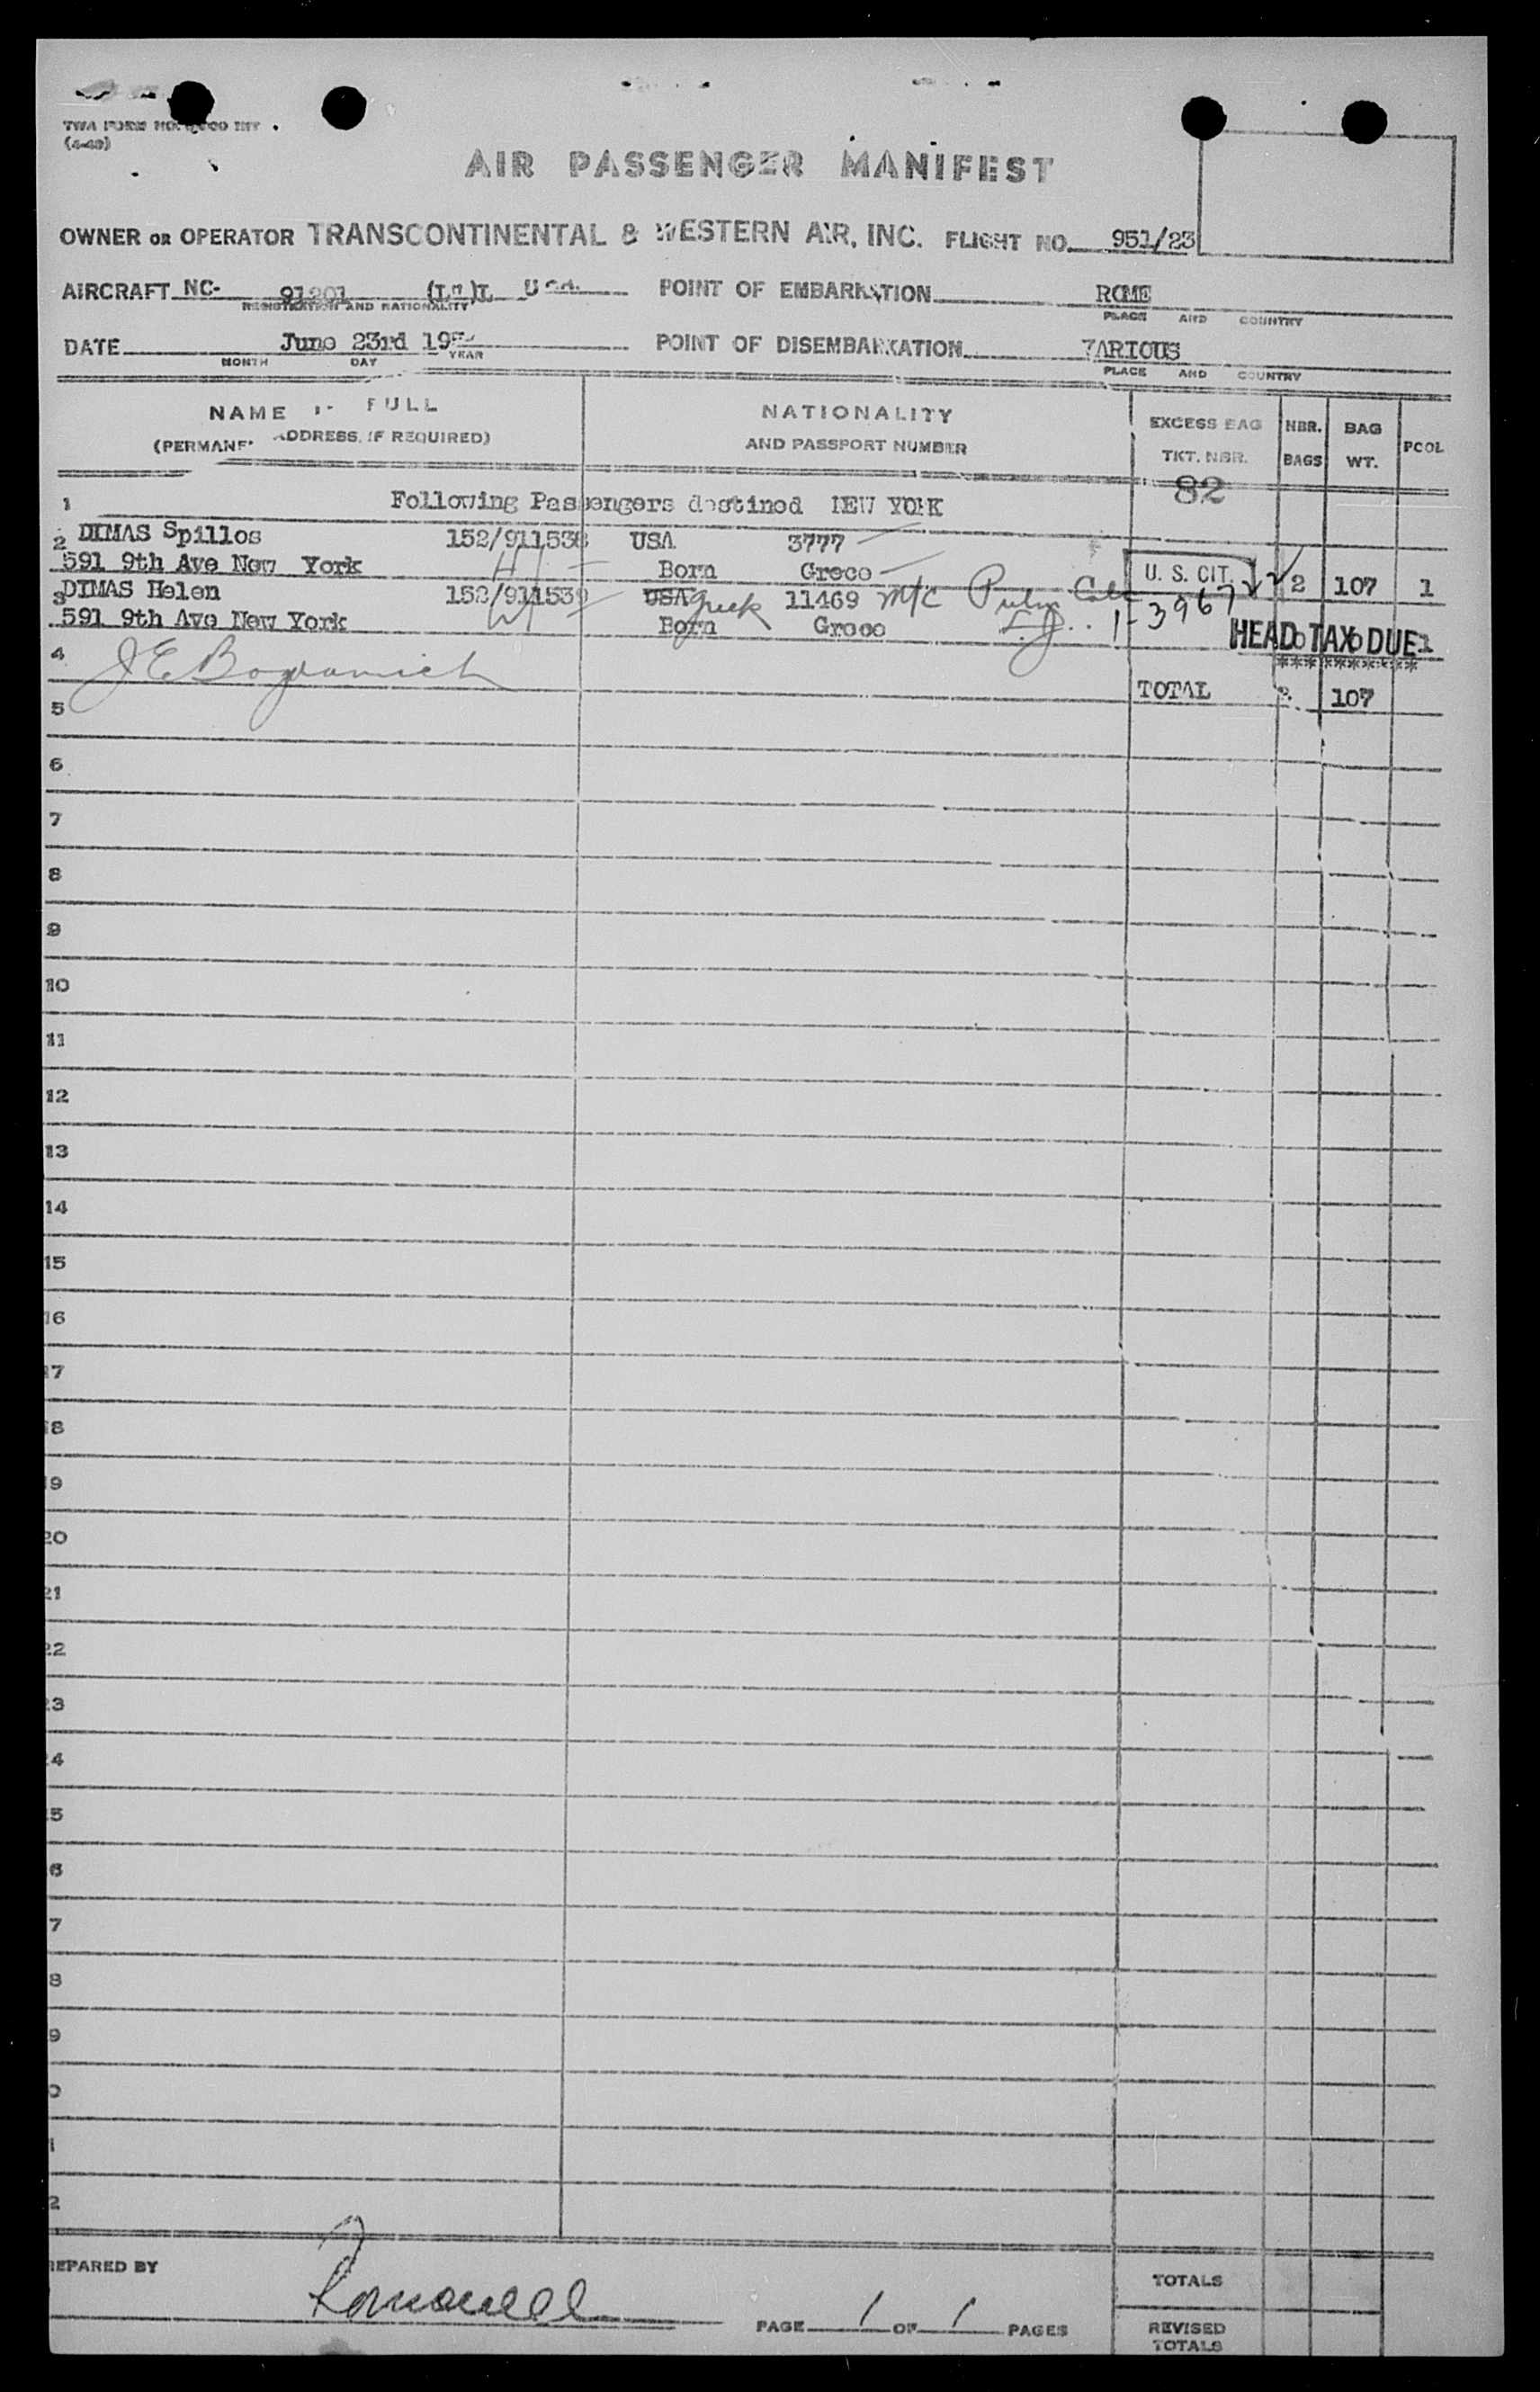 (4-49)
AIR PASSENGER MANIFEST
OWNER OR OPERATOR TRANSCONTINENTAL & WESTERN AIR, INC. FLIGHT NO. 951/23
AIRCRAFT NC- 91201 POINT OF EMBARKATION ROME
REGISTRATION AND NATIONALITY PLACE AND COUNTRY
DATE June 23rd POINT OF DISEMBARKATION VARIOUS
MONTH DAY YEAR PLACE AND COUNTRY
NAME FULL NATIONALITY EXCESS BAG NBR. BAG PCOL
ADDRESS, IF REQUIRED) AND PASSPORT NUMBER TKT. NBR. BAGS WT.
82
1 Following Passengers destined NEW YORK
2 DIMAS Spillos 152/911538 USA 3777
591 9th Ave New York Born Greece U. S. CIT. 2 107 1
3 DIMAS Helen 152/911539 USA Greek 11469 M/C 1-3967
591 9th Ave New York Born Greece HEAD TAX DUE 1
*********
4
TOTAL 2 107
5
6
7
8
9
10
11
12
13
14
15
16
17
18
19
20
21
22
23
24
5
6
7
8
9
0
1
2
REPARED BY TOTALS
PAGE 1 OF 1 PAGES REVISED
TOTALS